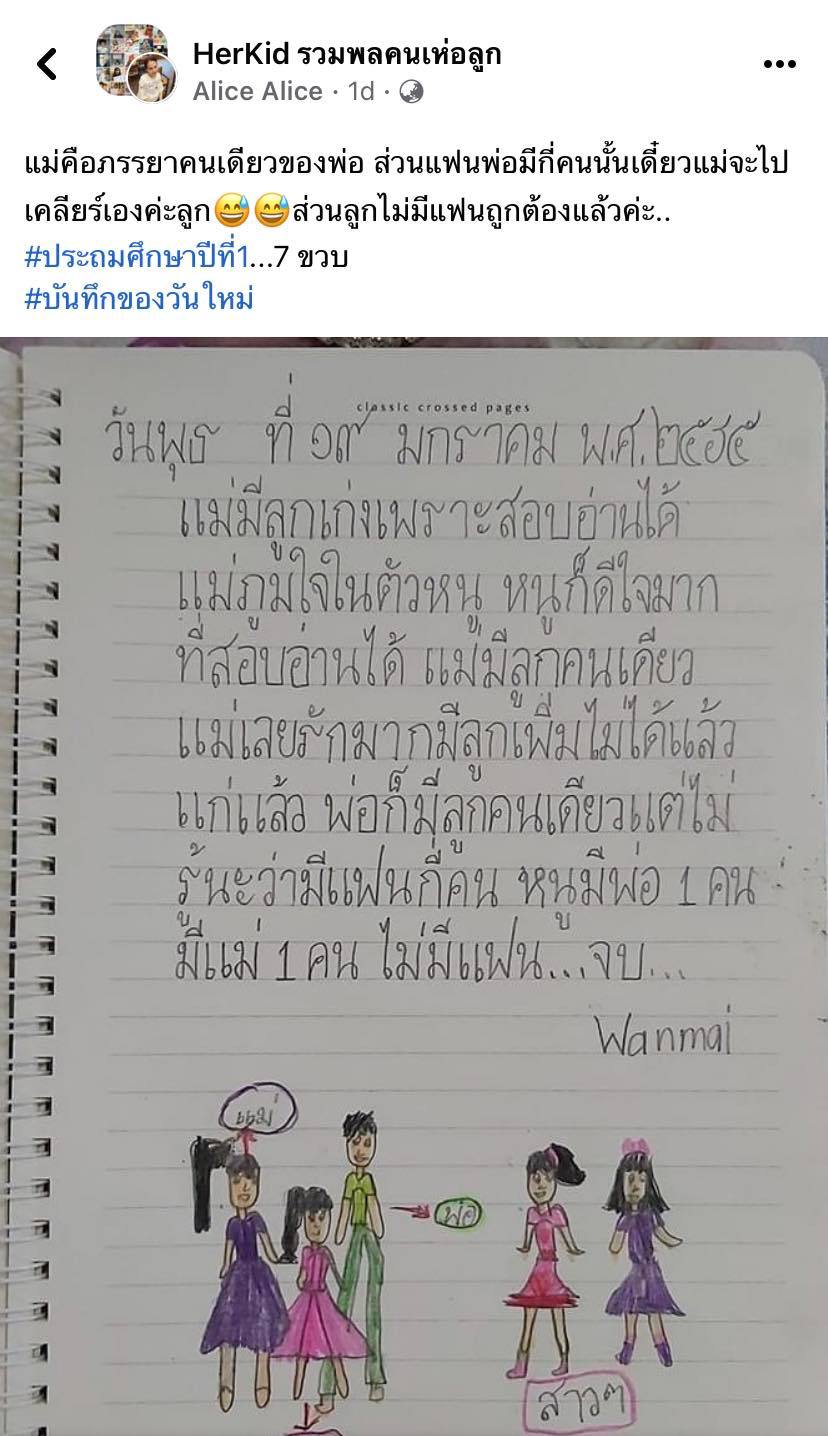 HerKid รวมพลคนเห่อลูก
Alice Alice · 1d ·
แม่คือภรรยาคนเดียวของพ่อ ส่วนแฟนพ่อมีกี่คนนั้นเดี๋ยวแม่จะไป
เคลียร์เองค่ะลูก😅😅ส่วนลูกไม่มีแฟนถูกต้องแล้วค่ะ..
#ประถมศึกษาปีที่1...7 ขวบ
#บันทึกของวันใหม่
classic crossed pages
วันพุธ ที่ ๑๙ มกราคม พ.ศ.๒๕๖๕
แม่มีลูกเก่งเพราะสอบอ่านได้
แม่ภูมิใจในตัวหนู หนูก็ดีใจมาก
ที่สอบอ่านได้ แม่มีลูกคนเดียว
แม่เลยรักมากมีลูกเพิ่มไม่ได้แล้ว
แก่แล้ว พ่อก็มีลูกคนเดียวแต่ไม่
รู้นะว่ามีแฟนกี่คน หนูมีพ่อ 1 คน
มีแม่ 1 คน ไม่มีแฟน...จบ...
Wanmai
แม่
พ่อ
สาวๆ